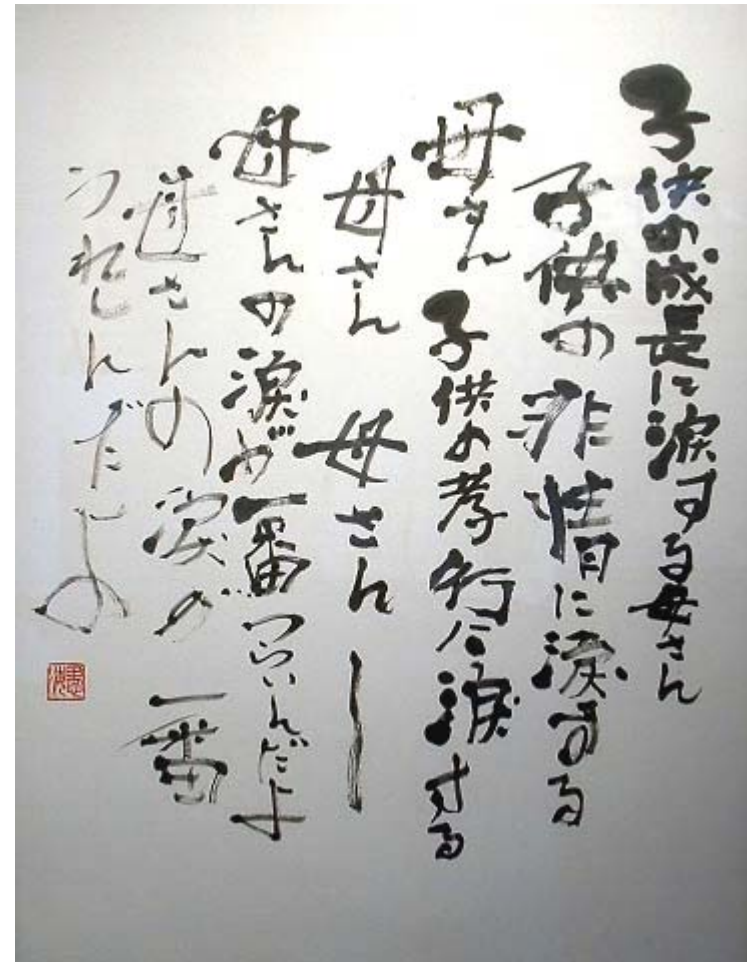 子供の成長に涙する母さん
子供の非情に涙する
母さん 子供の孝行に涙する
母さん 母さんー
母さんの涙が一番つらいんだよ
母さんの涙が一番
うれしんだよ